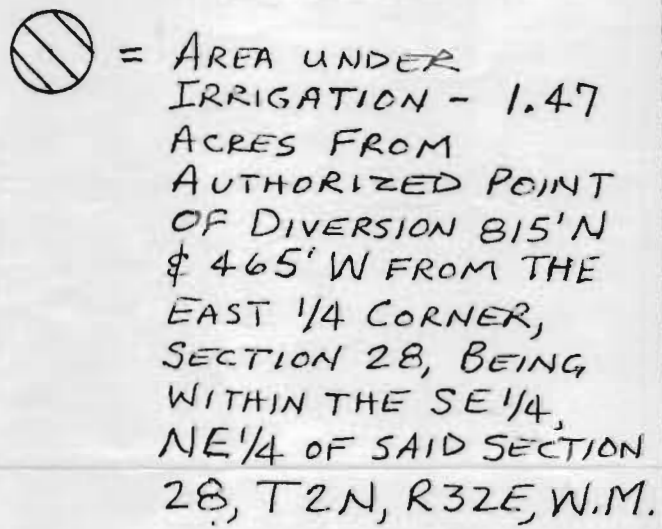 = AREA UNDER
IRRIGATION - 1.47
ACRES FROM
AUTHORIZED POINT
OF DIVERSION 815'N
& 465' W FROM THE
EAST 1/4 CORNER,
SECTION 28, BEING
WITHIN THE SE 1/4,
NE 1/4 OF SAID SECTION
28, T2N, R32E, W.M.